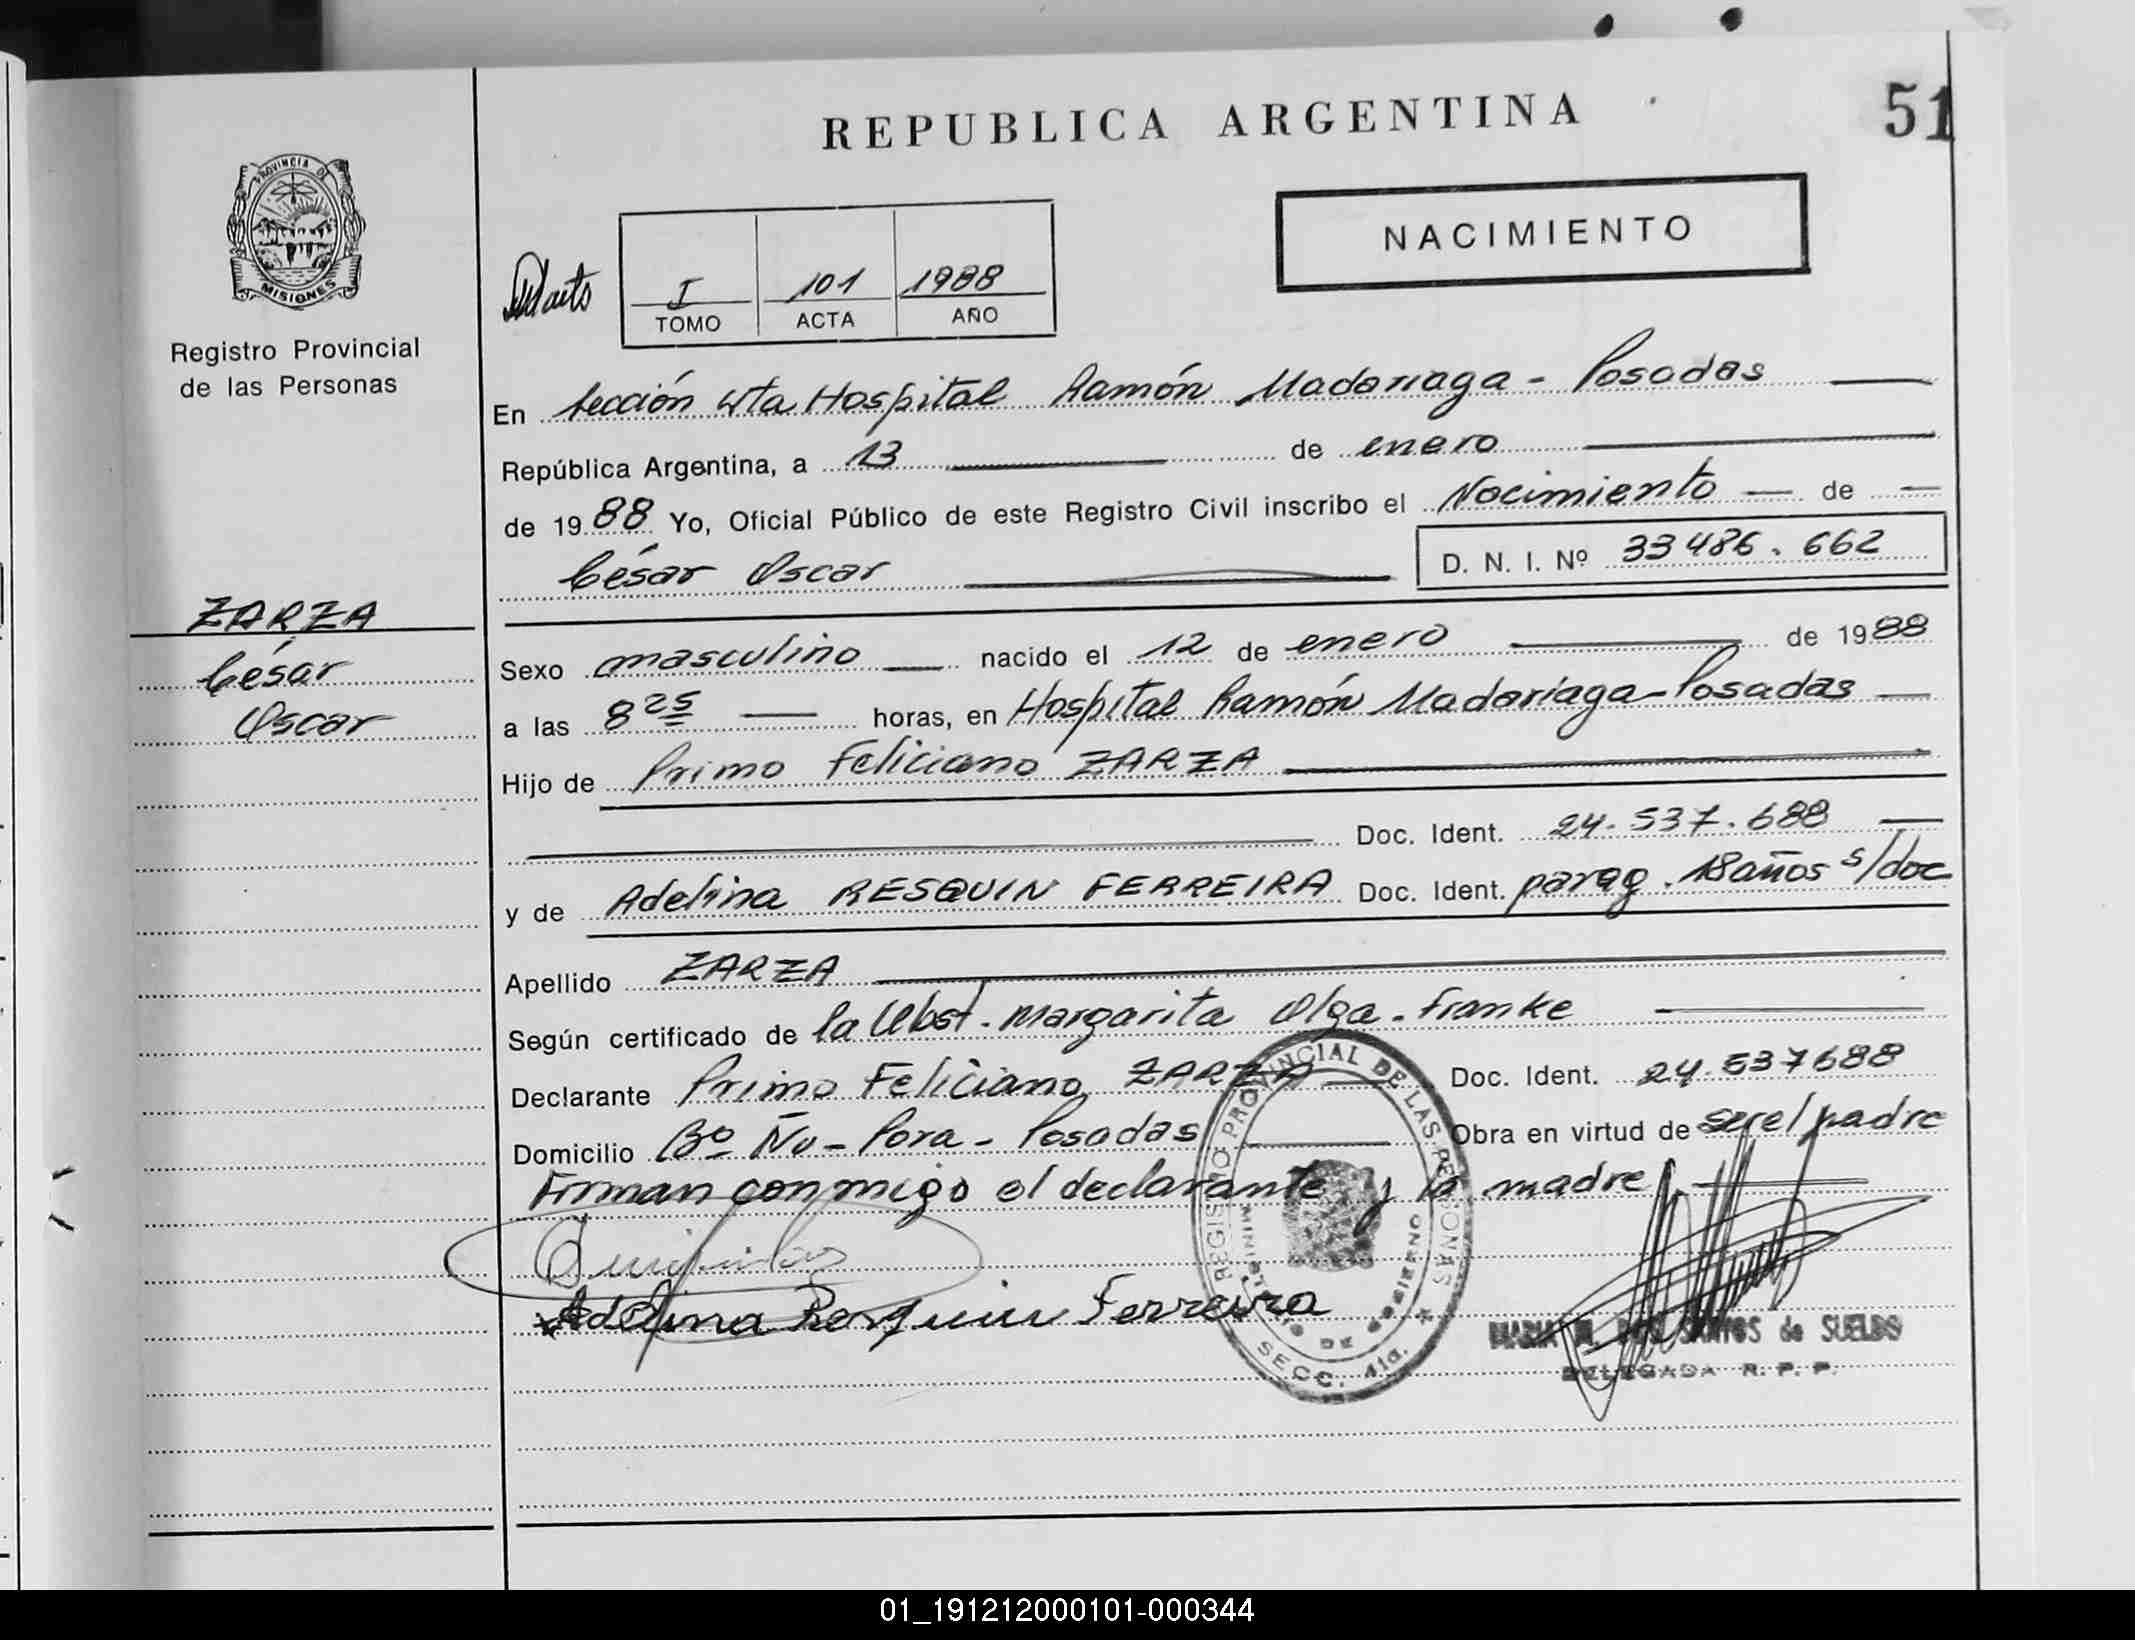 REPUBLICA ARGENTINA
51
PROVINCIA DE
MISIONES
Registro Provincial
de las Personas
NACIMIENTO
I 101 1988
TOMO ACTA AÑO
En Sección 4ta Hospital Ramón Madariaga - Posadas
República Argentina, a 13 de enero
de 1988 Yo, Oficial Público de este Registro Civil inscribo el Nacimiento de
César Oscar D. N. I. Nº 33486.662
ZARZA
César
Oscar
Sexo masculino nacido el 12 de enero de 1988
a las 8 25 horas, en Hospital Ramón Madariaga - Posadas
Hijo de Primo Feliciano ZARZA
Doc. Ident. 24.537.688
y de Adelina RESQUIN FERREIRA Doc. Ident. parag. 18 años s/doc
Apellido ZARZA
Según certificado de la Obst. Margarita Olga Franke
Declarante Primo Feliciano ZARZA Doc. Ident. 24.537688
Domicilio Bº Ñu - Pora - Posadas Obra en virtud de ser el padre
Firman conmigo el declarante y la madre
Adelina Resquin Ferreira
REGISTRO PROVINCIAL DE LAS PERSONAS
MINISTERIO DE GOBIERNO
SECC. 4ta.
MARIA SANTOS de SUELDO
DELEGADA R. P. P.
01_191212000101-000344